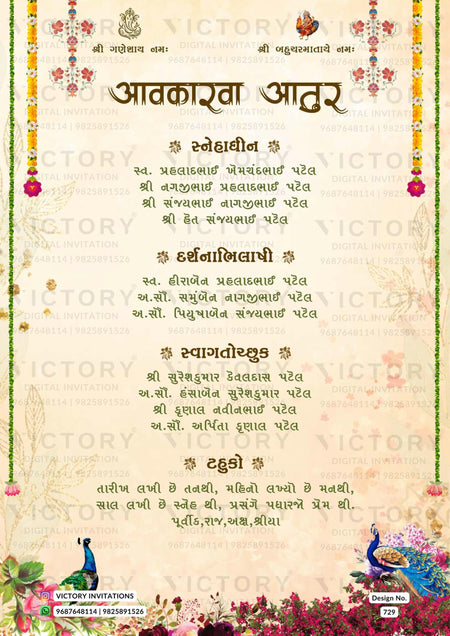 શ્રી ગણેશાય નમઃ
શ્રી બહુચરમાતાયે નમઃ
આવકારવા આતુર
સ્નેહાધીન
સ્વ. પ્રહલાદભાઈ ખેમચંદભાઈ પટેલ
શ્રી નાગજીભાઈ પ્રહલાદભાઈ પટેલ
શ્રી સંજયભાઈ નાગજીભાઈ પટેલ
શ્રી હેત સંજયભાઈ પટેલ
દર્શનાભિલાષી
સ્વ. હીરાબેન પ્રહલાદભાઈ પટેલ
અ.સૌ. સમુંબેન નાગજીભાઈ પટેલ
અ.સૌ. પિયુષાબેન સંજયભાઈ પટેલ
સ્વાગતોચ્છુક
શ્રી સુરેશકુમાર કેવલદાસ પટેલ
અ.સૌ. હંસાબેન સુરેશકુમાર પટેલ
શ્રી કૃણાલ નવીનભાઈ પટેલ
અ.સૌ. અર્પિતા કૃણાલ પટેલ
ટહુકો
તારીખ લખી છે તનથી, મહિનો લખ્યો છે મનથી,
સાલ લખી છે સ્નેહ થી, પ્રસંગે પધારજો પ્રેમ થી.
પૂર્વીક,રાજ,અક્ષ,શ્રીયા
VICTORY INVITATIONS
9687648114 | 9825891526
Design No.
729
VICTORY
DIGITAL INVITATION
9687648114 | 9825891526